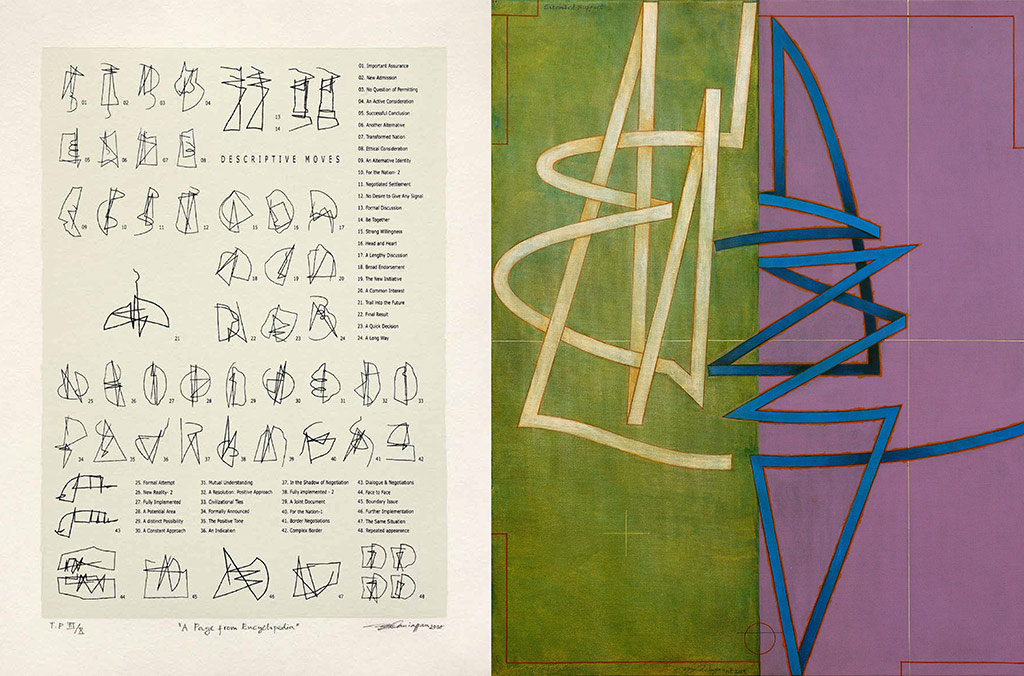 01 02 03 04 13
14
05 06 07 08
DESCRIPTIVE MOVES
09 10 11 12 15 16 17
18 19 20
21
22 23 24
01. Important Assurance
02. New Admission
03. No Question of Permitting
04. An Active Consideration
05. Successful Conclusion
06. Another Alternative
07. Transformed Nation
08. Ethical Consideration
09. An Alternative Identity
10. For the Nation- 2
11. Negotiated Settlement
12. No Desire to Give Any Signal
13. Formal Discussion
14. Be Together
15. Strong Willingness
16. Head and Heart
17. A Lengthy Discussion
18. Broad Endorsement
19. The New Initiative
20. A Common Interest
21. Trail into the Future
22. Final Result
23. A Quick Decision
24. A Long Way
25 26 27 28 29 30 31 32 33
34 35 36 37 38 39 40 41 42
43
25. Formal Attempt
26. New Reality- 2
27. Fully Implemented
28. A Potential Area
29. A distinct Possibility
30. A Constant Approach
31. Mutual Understanding
32. A Resolution: Positive Approach
33. Civilizational Ties
34. Formally Announced
35. The Positive Tone
36. An Indication
37. In the Shadow of Negotiation
38. Fully implemented - 2
39. A Joint Document
40. For the Nation-1
41. Border Negotiations
42. Complex Border
43. Dialogue & Negotiations
44. Face to Face
45. Boundary Issue
46. Further Implementation
47. The Same Situation
48. Repeated appearance
44 45 46 47 48
T.P
"A Page from Encyclopedia"